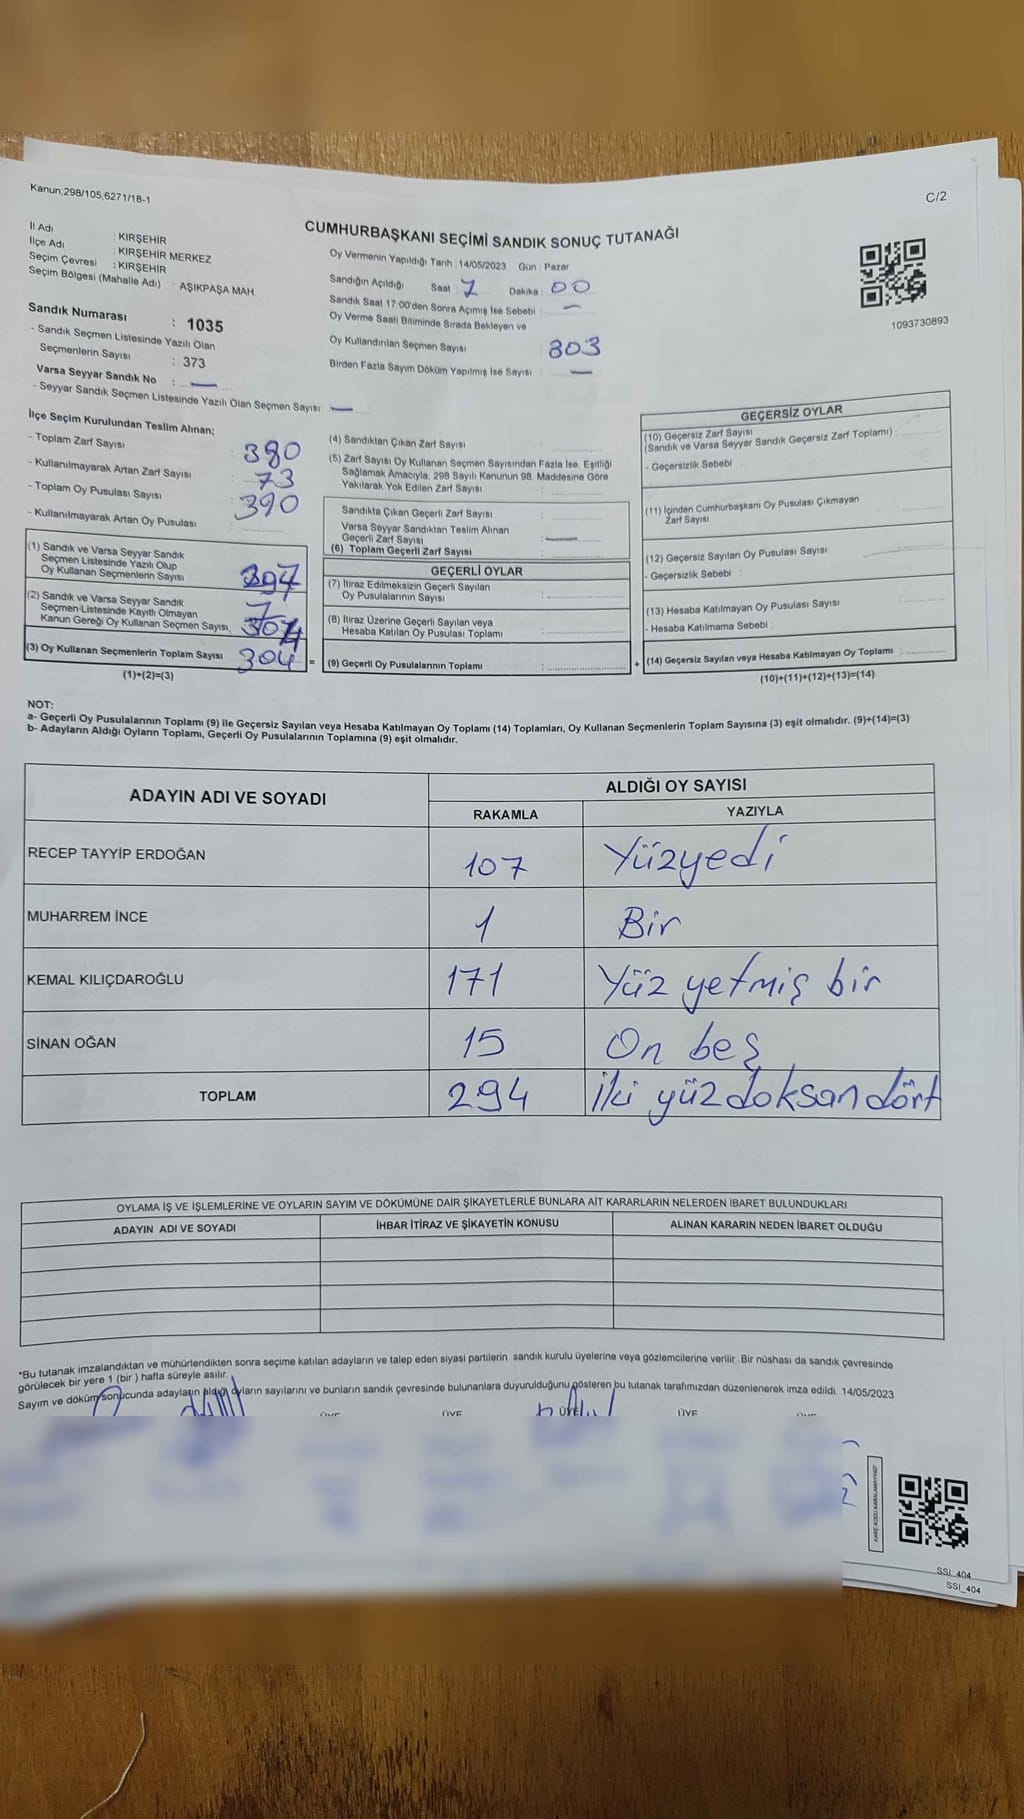 Kanun;298/105,6271/18-1
C/2
CUMHURBAŞKANI SEÇİMİ SANDIK SONUÇ TUTANAĞI
İl Adı : KIRŞEHİR
İlçe Adı : KIRŞEHİR MERKEZ
Seçim Çevresi : KIRŞEHİR
Seçim Bölgesi (Mahalle Adı) : AŞIKPAŞA MAH.
Sandık Numarası : 1035
- Sandık Seçmen Listesinde Yazılı Olan
Seçmenlerin Sayısı : 373
Varsa Seyyar Sandık No : —
- Seyyar Sandık Seçmen Listesinde Yazılı Olan Seçmen Sayısı: —
Oy Vermenin Yapıldığı Tarih : 14/05/2023 Gün : Pazar
Sandığın Açıldığı Saat : 7 Dakika : 00
Sandık Saat 17.00'den Sonra Açımış İse Sebebi : —
Oy Verme Saati Bitiminde Sırada Bekleyen ve
Oy Kullandırılan Seçmen Sayısı : 303
Birden Fazla Sayım Döküm Yapılmış İse Sayısı : —
1093730893
İlçe Seçim Kurulundan Teslim Alınan;
- Toplam Zarf Sayısı : 380
- Kullanılmayarak Artan Zarf Sayısı : 73
- Toplam Oy Pusulası Sayısı : 390
- Kullanılmayarak Artan Oy Pusulası :
(1) Sandık ve Varsa Seyyar Sandık
Seçmen Listesinde Yazılı Olup
Oy Kullanan Seçmenlerin Sayısı
(2) Sandık ve Varsa Seyyar Sandık
Seçmen Listesinde Kayıtlı Olmayan
Kanun Gereği Oy Kullanan Seçmen Sayısı 7
(3) Oy Kullanan Seçmenlerin Toplam Sayısı 304
(1)+(2)=(3)
(4) Sandıktan Çıkan Zarf Sayısı :
(5) Zarf Sayısı Oy Kullanan Seçmen Sayısından Fazla İse, Eşitliği
Sağlamak Amacıyla; 298 Sayılı Kanunun 98. Maddesine Göre
Yakılarak Yok Edilen Zarf Sayısı :
Sandıkta Çıkan Geçerli Zarf Sayısı :
Varsa Seyyar Sandıktan Teslim Alınan
Geçerli Zarf Sayısı : —
(6) Toplam Geçerli Zarf Sayısı :
GEÇERLİ OYLAR
(7) İtiraz Edilmeksizin Geçerli Sayılan
Oy Pusulalarının Sayısı :
(8) İtiraz Üzerine Geçerli Sayılan veya
Hesaba Katılan Oy Pusulası Toplamı :
= (9) Geçerli Oy Pusulalarının Toplamı :
GEÇERSİZ OYLAR
(10) Geçersiz Zarf Sayısı
(Sandık ve Varsa Seyyar Sandık Geçersiz Zarf Toplamı) :
- Geçersizlik Sebebi :
(11) İçinden Cumhurbaşkanı Oy Pusulası Çıkmayan
Zarf Sayısı :
(12) Geçersiz Sayılan Oy Pusulası Sayısı :
- Geçersizlik Sebebi :
(13) Hesaba Katılmayan Oy Pusulası Sayısı :
- Hesaba Katılmama Sebebi :
+ (14) Geçersiz Sayılan veya Hesaba Katılmayan Oy Toplamı :
(10)+(11)+(12)+(13)=(14)
NOT:
a- Geçerli Oy Pusulalarının Toplamı (9) ile Geçersiz Sayılan veya Hesaba Katılmayan Oy Toplamı (14) Toplamları, Oy Kullanan Seçmenlerin Toplam Sayısına (3) eşit olmalıdır. (9)+(14)=(3)
b- Adayların Aldığı Oyların Toplamı, Geçerli Oy Pusulalarının Toplamına (9) eşit olmalıdır.
ADAYIN ADI VE SOYADI
ALDIĞI OY SAYISI
RAKAMLA YAZIYLA
RECEP TAYYİP ERDOĞAN 107 Yüzyedi
MUHARREM İNCE 1 Bir
KEMAL KILIÇDAROĞLU 171 Yüz yetmiş bir
SİNAN OĞAN 15 On beş
TOPLAM 294 İki yüz doksan dört
OYLAMA İŞ VE İŞLEMLERİNE VE OYLARIN SAYIM VE DÖKÜMÜNE DAİR ŞİKAYETLERLE BUNLARA AİT KARARLARIN NELERDEN İBARET BULUNDUKLARI
ADAYIN ADI VE SOYADI İHBAR İTİRAZ VE ŞİKAYETİN KONUSU ALINAN KARARIN NEDEN İBARET OLDUĞU
*Bu tutanak imzalandıktan ve mühürlendikten sonra seçime katılan adayların ve talep eden siyasi partilerin sandık kurulu üyelerine veya gözlemcilerine verilir. Bir nüshası da sandık çevresinde
görülecek bir yere 1 (bir ) hafta süreyle asılır.
Sayım ve döküm sonucunda adayların aldığı oyların sayılarını ve bunların sandık çevresinde bulunanlara duyurulduğunu gösteren bu tutanak tarafımızdan düzenlenerek imza edildi. 14/05/2023
ÜYE ÜYE ÜYE ÜYE
KARE KODU KARALAMAYINIZ!
SSI_404
SSI_404